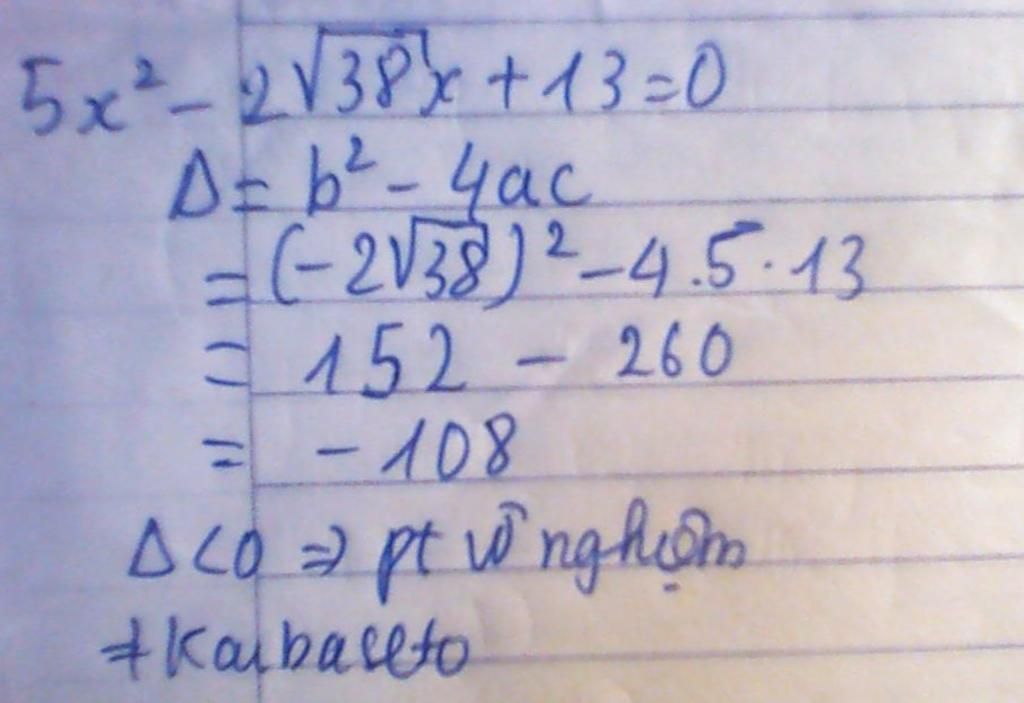 5x² - 2√38x + 13 = 0
Δ = b² - 4ac
= (-2√38)² - 4.5.13
= 152 - 260
= -108
Δ < 0 => pt vô nghiệm